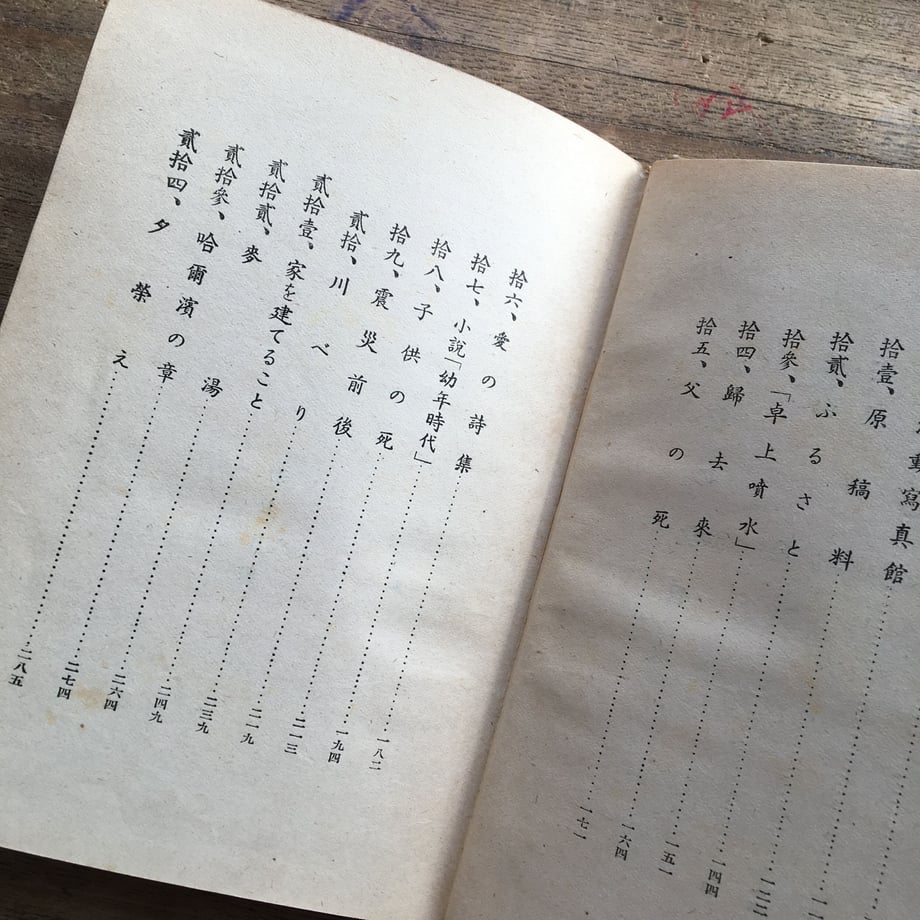 動寫真館
拾壹、原稿料
拾貳、ふるさと……一四四
拾參、「卓上噴水」……一五一
拾四、歸去來……一六四
拾五、父の死……一七一
拾六、愛の詩集……一八二
拾七、小説「幼年時代」……一九四
拾八、子供の死……二一三
拾九、震災前後……二一九
貳拾、川べり……二三九
貳拾壹、家を建てること……二四九
貳拾貳、麥湯……二六四
貳拾參、哈爾濱の章……二七四
貳拾四、夕榮え……二八五